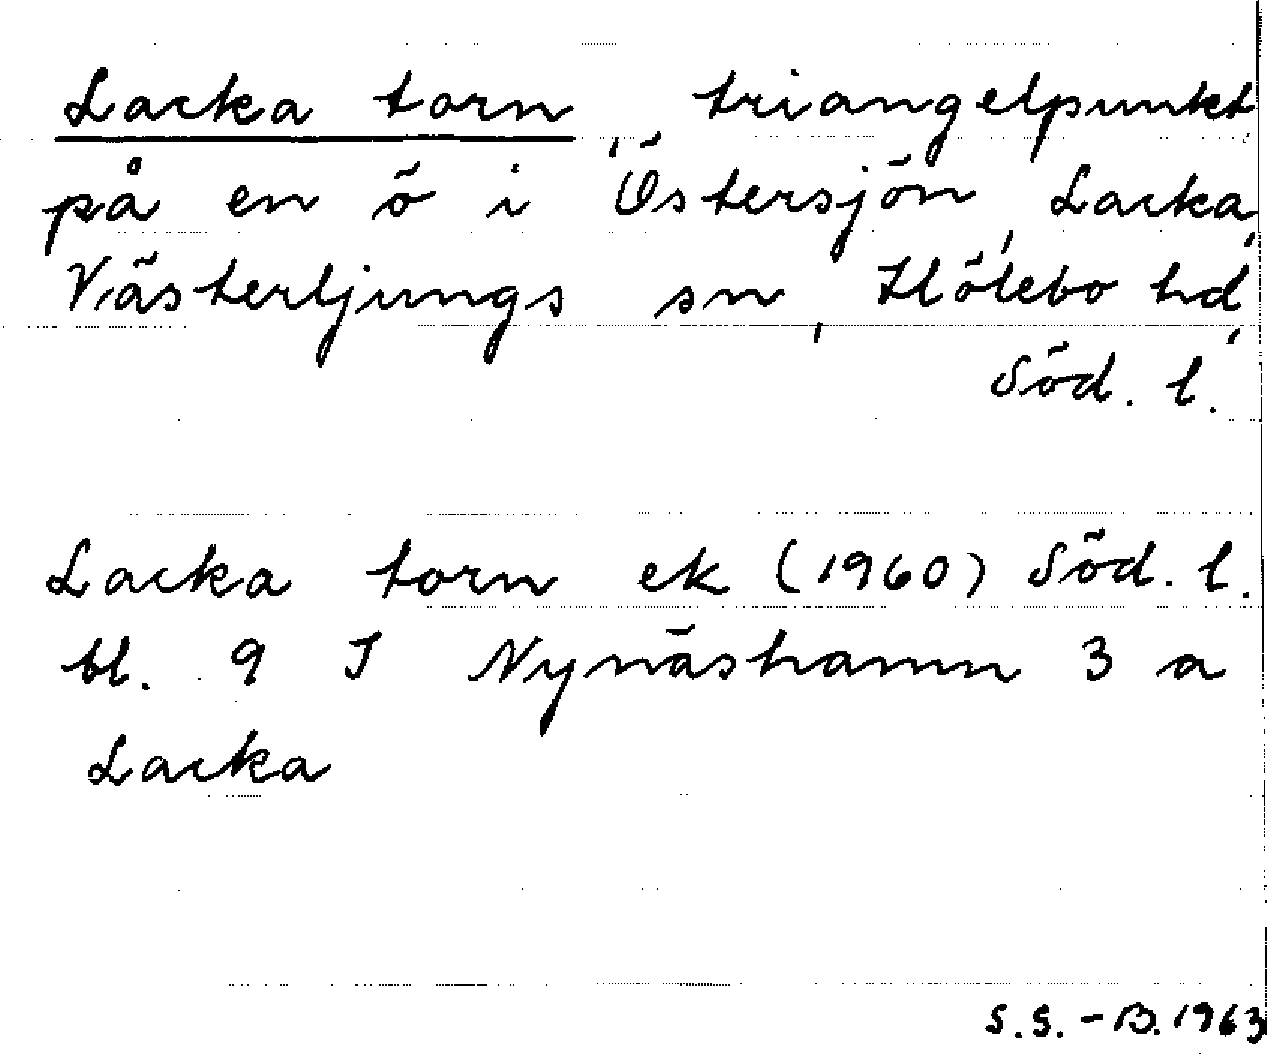 Lacka torn, triangelpunkt
på en ö i Östersjön, Lacka,
Västerljungs sn, Hölebo hd,
Söd. l.
Lacka torn ek (1960) Söd. l.
bl. 9 I Nynäshamn 3 a
Lacka
S.S.-B. 1963